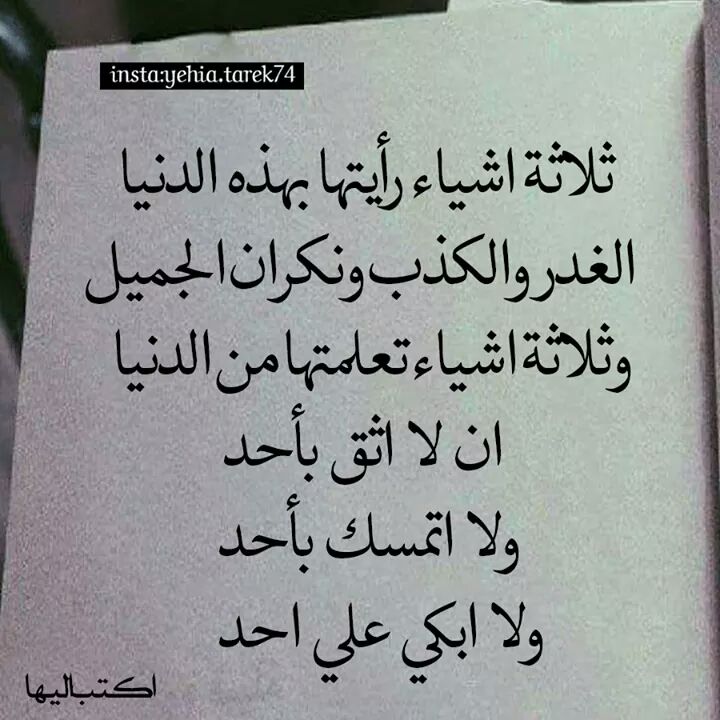 insta:yehia.tarek74
ثلاثة اشياء رأيتها بهذه الدنيا
الغدر والكذب ونكران الجميل
وثلاثة اشياء تعلمتها من الدنيا
ان لا اثق بأحد
ولا اتمسك بأحد
ولا ابكي علي احد
اكتباليها